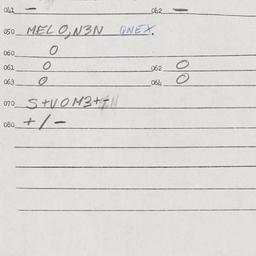 041 — 042 —
050 MELO,N3N ONEX.
060 O
061 O 062 O
063 O 064 O
070 S+VOM3+-
080 +/-